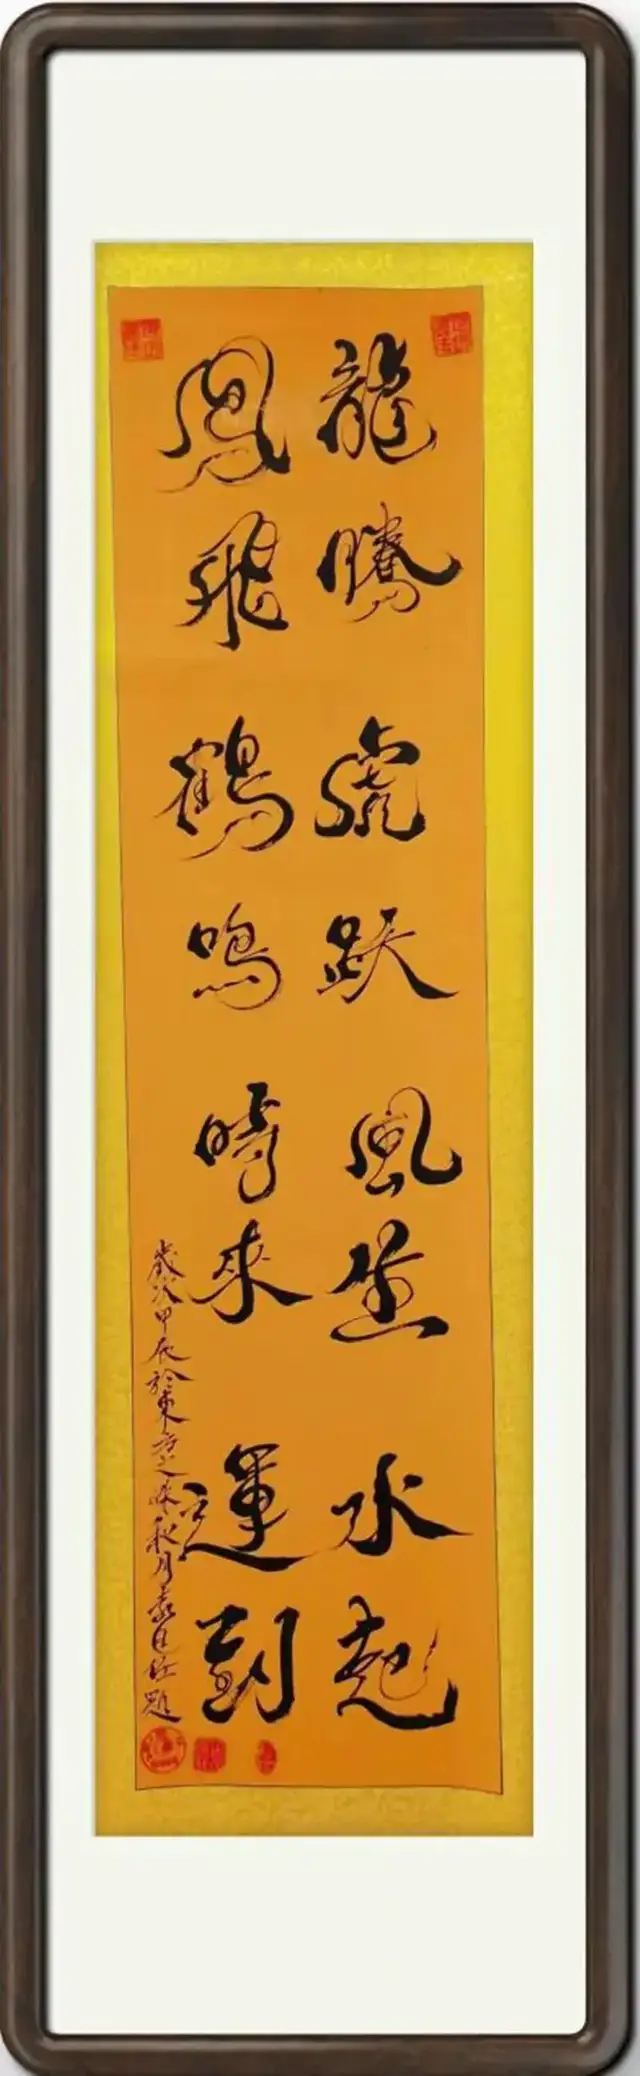 龍騰虎跃風生水起
鳳飛鶴鳴時來運到
歲次甲辰於東方之珠秋月袁題